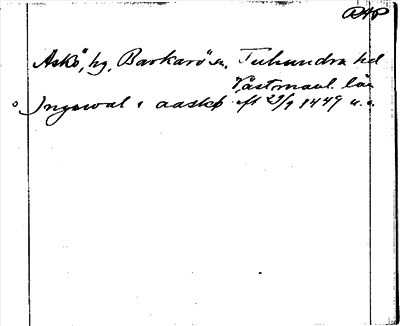 Askö, hg, Barkarö sn, Tuhundra hd
Västmanl. län
Ingewal i aaskø aft 29/9 1449 u.a.